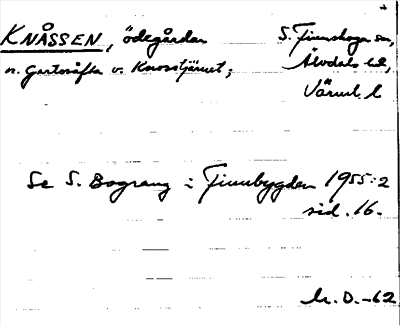 KNÅSSEN, ödegården S. Finnskoga sn,
n. Gartosåfta v. Knosstjärnet; Älvdals hd,
Värml. l
Se S. Bograng i Finnbygden 1955:2
sid. 16.
-62